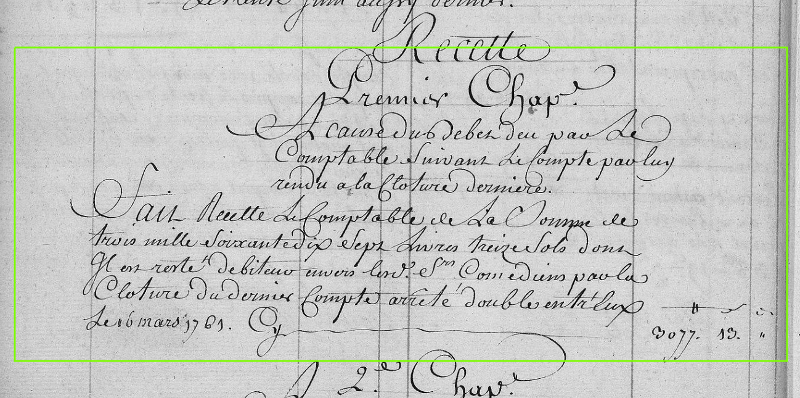 Le neuf Juin aussy dernier.
Recette
Premier Chap.e
A cause du debet deu par Le
Comptable Suivant Le Compte par luy
rendu a la Cloture derniere.
Fait Recette Le Comptable de La Somme de
trois mille Soixante dix Sept Livres treize Sols dont
Il est resté debiteur envers les d. Srs Comédiens par la
Cloture du dernier Compte arrêté double entr'eux
Le 16 mars 1761. Cy
3077. 13. "
2.e Chap.e